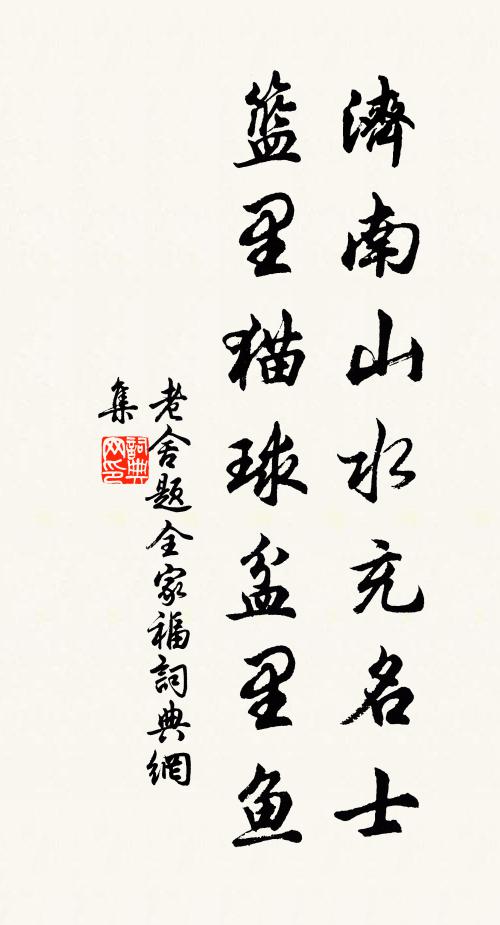 濟南山水充名士
籃里猫球盆里鱼
老舍题全家福詞典網
集
詞典
网印